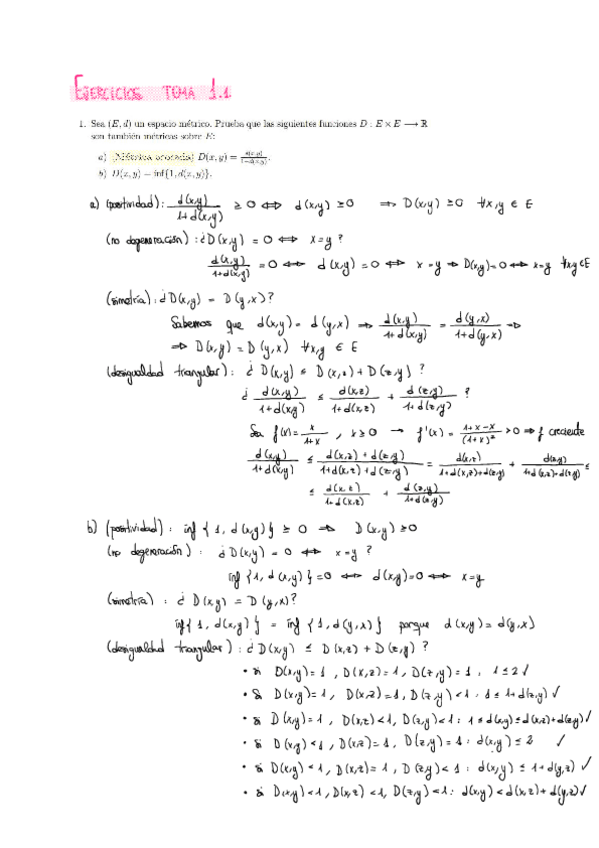 EJERCICIOS TEMA 1.1
1. Sea (E, d) un espacio métrico. Prueba que las siguientes funciones D : E × E → ℝ
son también métricas sobre E:
a) (Métrica acotada) D(x, y) = d(x,y)/(1+d(x,y)).
b) D(x, y) = inf{1, d(x, y)}.
a) (positividad): d(x,y)/(1+d(x,y)) ≥ 0 ⟺ d(x,y) ≥ 0 ⟹ D(x,y) ≥ 0 ∀x,y ∈ E
(no degeneración): ¿D(x,y) = 0 ⟺ x=y ?
d(x,y)/(1+d(x,y)) = 0 ⟺ d(x,y) = 0 ⟺ x=y ⟹ D(x,y)=0 ⟺ x=y ∀x,y ∈ E
(simetría): ¿D(x,y) = D(y,x)?
Sabemos que d(x,y) = d(y,x) ⟹ d(x,y)/(1+d(x,y)) = d(y,x)/(1+d(y,x)) ⟹
⟹ D(x,y) = D(y,x) ∀x,y ∈ E
(desigualdad triangular): ¿ D(x,y) ≤ D(x,z) + D(z,y) ?
¿ d(x,y)/(1+d(x,y)) ≤ d(x,z)/(1+d(x,z)) + d(z,y)/(1+d(z,y)) ?
Sea f(x) = x/(1+x), x ≥ 0 → f'(x) = (1+x-x)/(1+x)² > 0 ⟹ f creciente
d(x,y)/(1+d(x,y)) ≤ (d(x,z) + d(z,y))/(1+d(x,z) + d(z,y)) = d(x,z)/(1+d(x,z)+d(z,y)) + d(z,y)/(1+d(x,z)+d(z,y)) ≤
≤ d(x,z)/(1+d(x,z)) + d(z,y)/(1+d(z,y))
b) (positividad): inf {1, d(x,y)} ≥ 0 ⟹ D(x,y) ≥ 0
(no degeneración): ¿D(x,y) = 0 ⟺ x=y ?
inf {1, d(x,y)} = 0 ⟺ d(x,y)=0 ⟺ x=y
(simetría): ¿ D(x,y) = D(y,x)?
inf {1, d(x,y)} = inf {1, d(y,x)} porque d(x,y) = d(y,x)
(desigualdad triangular): ¿D(x,y) ≤ D(x,z) + D(z,y) ?
• si D(x,y)=1, D(x,z)=1, D(z,y)=1 : 1 ≤ 2 ✓
• Si D(x,y)=1, D(x,z)=1, D(z,y)<1 : 1 ≤ 1+d(z,y) ✓
• si D(x,y)=1, D(x,z)<1, D(z,y)<1 : 1 ≤ d(x,y) ≤ d(x,z)+d(z,y) ✓
• si D(x,y)<1, D(x,z)=1, D(z,y)=1 : d(x,y) ≤ 2 ✓
• si D(x,y)<1, D(x,z)=1, D(z,y)<1 : d(x,y) ≤ 1+d(y,z) ✓
• si D(x,y)<1, D(x,z)<1, D(z,y)<1 : d(x,y) < d(x,z)+d(y,z) ✓